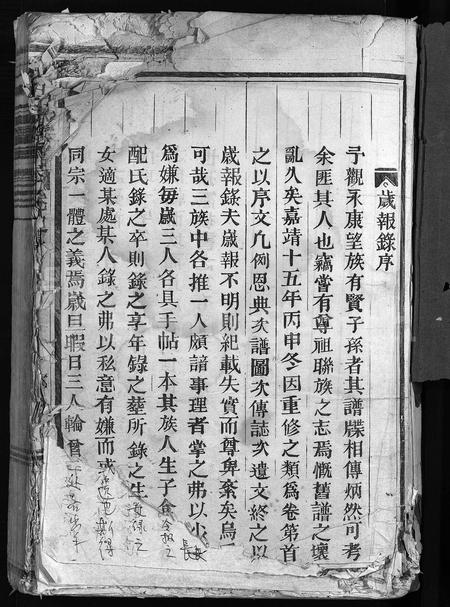 歲報錄序
予觀永康望族有賢子孫者其譜牒相傳炳然可考
余匪其人也竊嘗有尊祖聯族之志焉慨舊譜之壞
亂久矣嘉靖十五年丙申冬因重修之類為卷第首
之以序文凡例恩典次譜圖次傳誌次遺文終之以
歲報錄夫歲報不明則紀載失實而尊卑紊矣烏
可哉三族中各推一人頗諳事理者掌之弗以小
為嫌每歲三人各具手帖一本其族人生子
配氏錄之卒則錄之享年錄之塟所錄之生
女適某處某人錄之弗以私意有嫌而或
同宗一體之義焉歲旦暇日三人輪